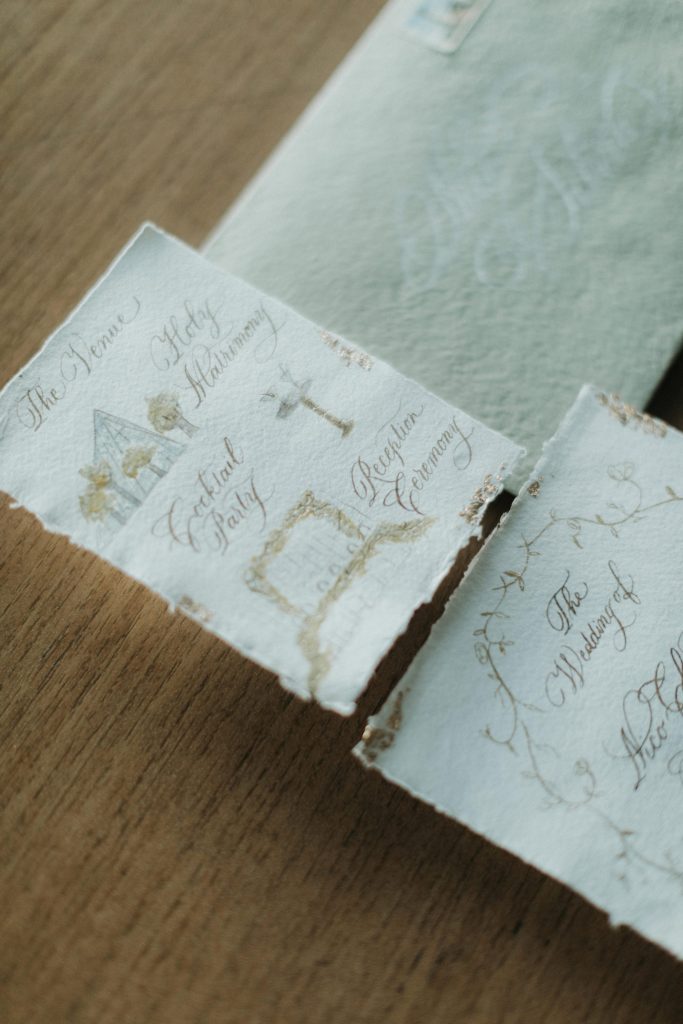 The Venue
Holy
Matrimony
Cocktail
Party
Reception
Ceremony
The
Wedding of
Nico